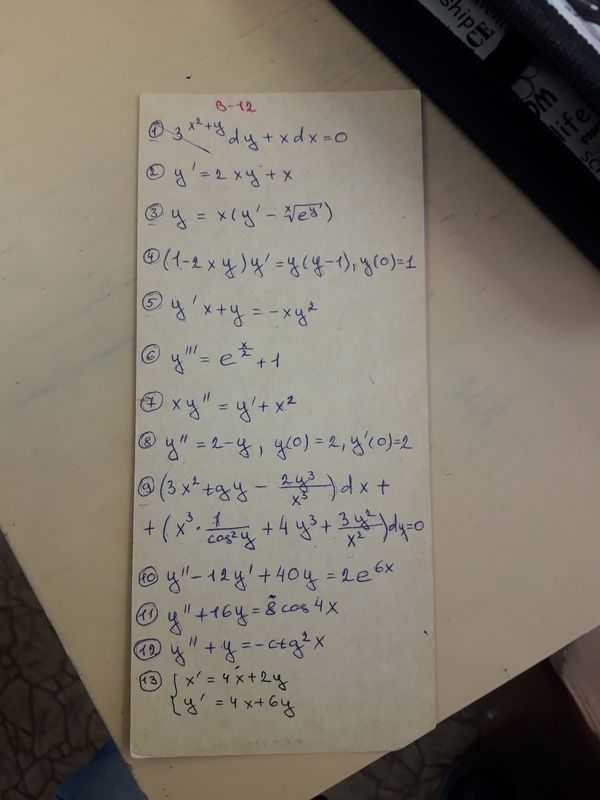 ship
life
B-12
① 3^{x²+y} dy + x dx = 0
② y' = 2xy + x
③ y = x(y' - ˣ√(e^y))
④ (1-2xy)y' = y(y-1), y(0)=1
⑤ y'x + y = -xy²
⑥ y''' = e^{x/2} + 1
⑦ xy'' = y' + x²
⑧ y'' = 2-y, y(0) = 2, y'(0)=2
⑨ (3x² tg y - 2y³/x³) dx +
+ (x³ · 1/cos²y + 4y³ + 3y²/x²) dy = 0
⑩ y'' - 12y' + 40y = 2e^{6x}
⑪ y'' + 16y = 8 cos 4x
⑫ y'' + y = -ctg²x
⑬ { x' = 4x + 2y
{ y' = 4x + 6y